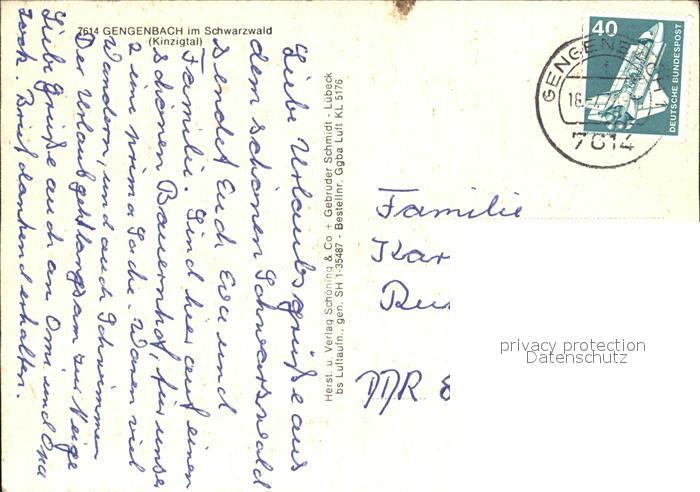 7614 GENGENBACH im Schwarzwald
(Kinzigtal)
Liebe Urlaubsgrüße aus
dem schönen Schwarzwald
sendet Euch Eva und
Familie. Sind hier auf einen
schönen Bauernhof, für unse
2 eine prima Sache. Waren viel
Wandern, und auch Schwimmen
Der Urlaub geht langsam zur Neige
Liebe Grüße auch an Omi und Opa
Brief dankend erhalten.
Herst. u. Verlag Schöning & Co + Gebrüder Schmidt - Lübeck
bs Luftaufn., gen. SH 1-35487 - Bestellnr. Ggba Luft KL 5176
40
DEUTSCHE BUNDESPOST
GENGENB
18.
7614
Familie
Kar
DDR 8
privacy protection
Datenschutz